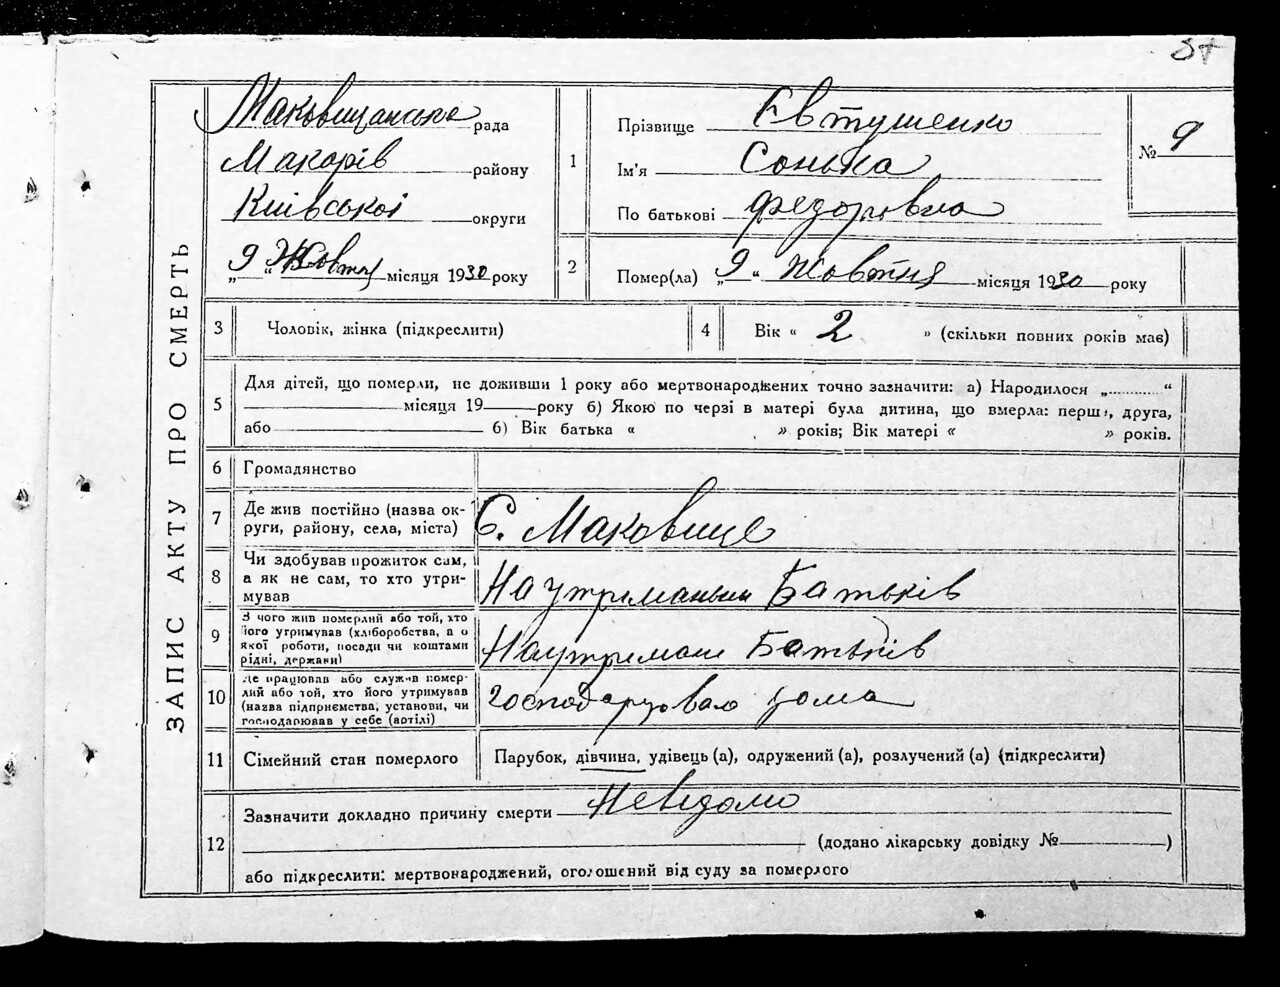 37
ЗАПИС АКТУ ПРО СМЕРТЬ
Маковищанська рада
Макарів району
Київської округи
„9“ Жовтня місяця 1930 року
1
Прізвище Євтушенко
Ім'я Сонька
По батькові Федоровна
№ 9
2
Помер(ла) „9“ жовтня місяця 1930 року
3 Чоловік, жінка (підкреслити)
4 Вік « 2 » (скільки повних років має)
5
Для дітей, що померли, не доживши 1 року або мертвонароджених точно зазначити: а) Народилося „..........“
місяця 19 року б) Якою по черзі в матері була дитина, що вмерла: перша, друга,
або б) Вік батька « » років; Вік матері « » років.
6 Громадянство
7
Де жив постійно (назва ок-
руги, району, села, міста)
С. Маковище
8
Чи здобував прожиток сам,
а як не сам, то хто утри-
мував
На утриманьи Батьків
9
З чого жив померлий або той, хто
його утримував (хліборобства, а о
якої роботи, посади чи коштами
рідні, держави)
На утримани Батьків
10
Де працював або служив помер-
лий або той, хто його утримував
(назва підприємства, установи, чи
господарював у себе (артілі)
Господарювало дома
11 Сімейний стан померлого
Парубок, дівчина, удівець (а), одружений (а), розлучений (а) (підкреслити)
12
Зазначити докладно причину смерти Невідомо
(додано лікарську довідку № )
або підкреслити: мертвонароджений, оголошений від суду за померлого